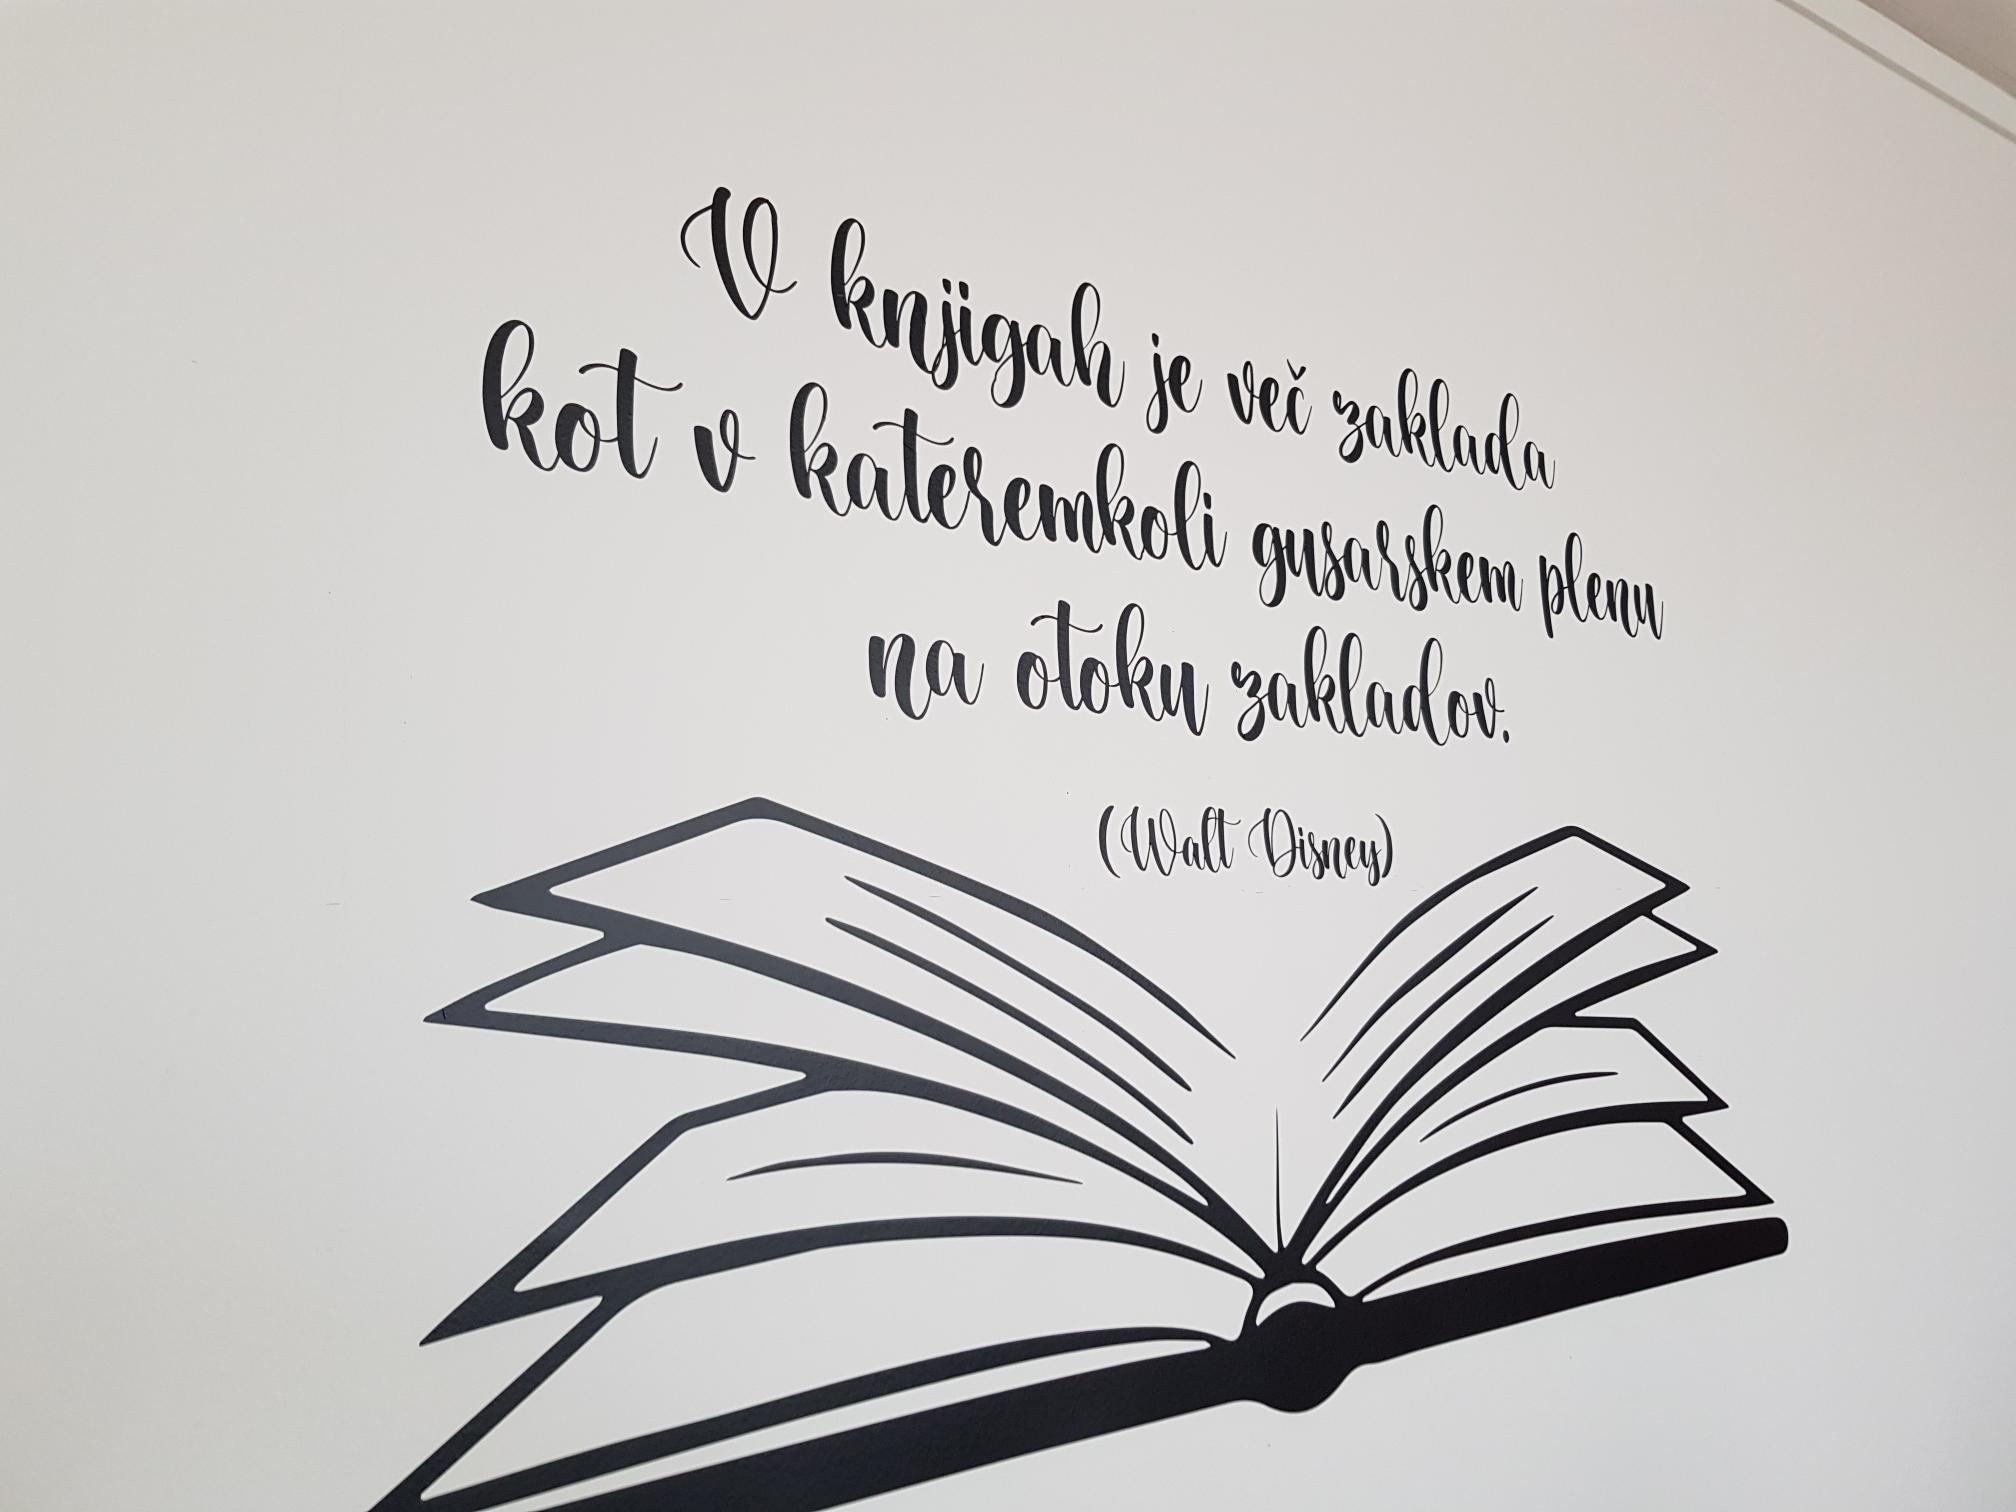 V knjigah je več zaklada
kot v kateremkoli gusarskem plenu
na otoku zakladov.
(Walt Disney)